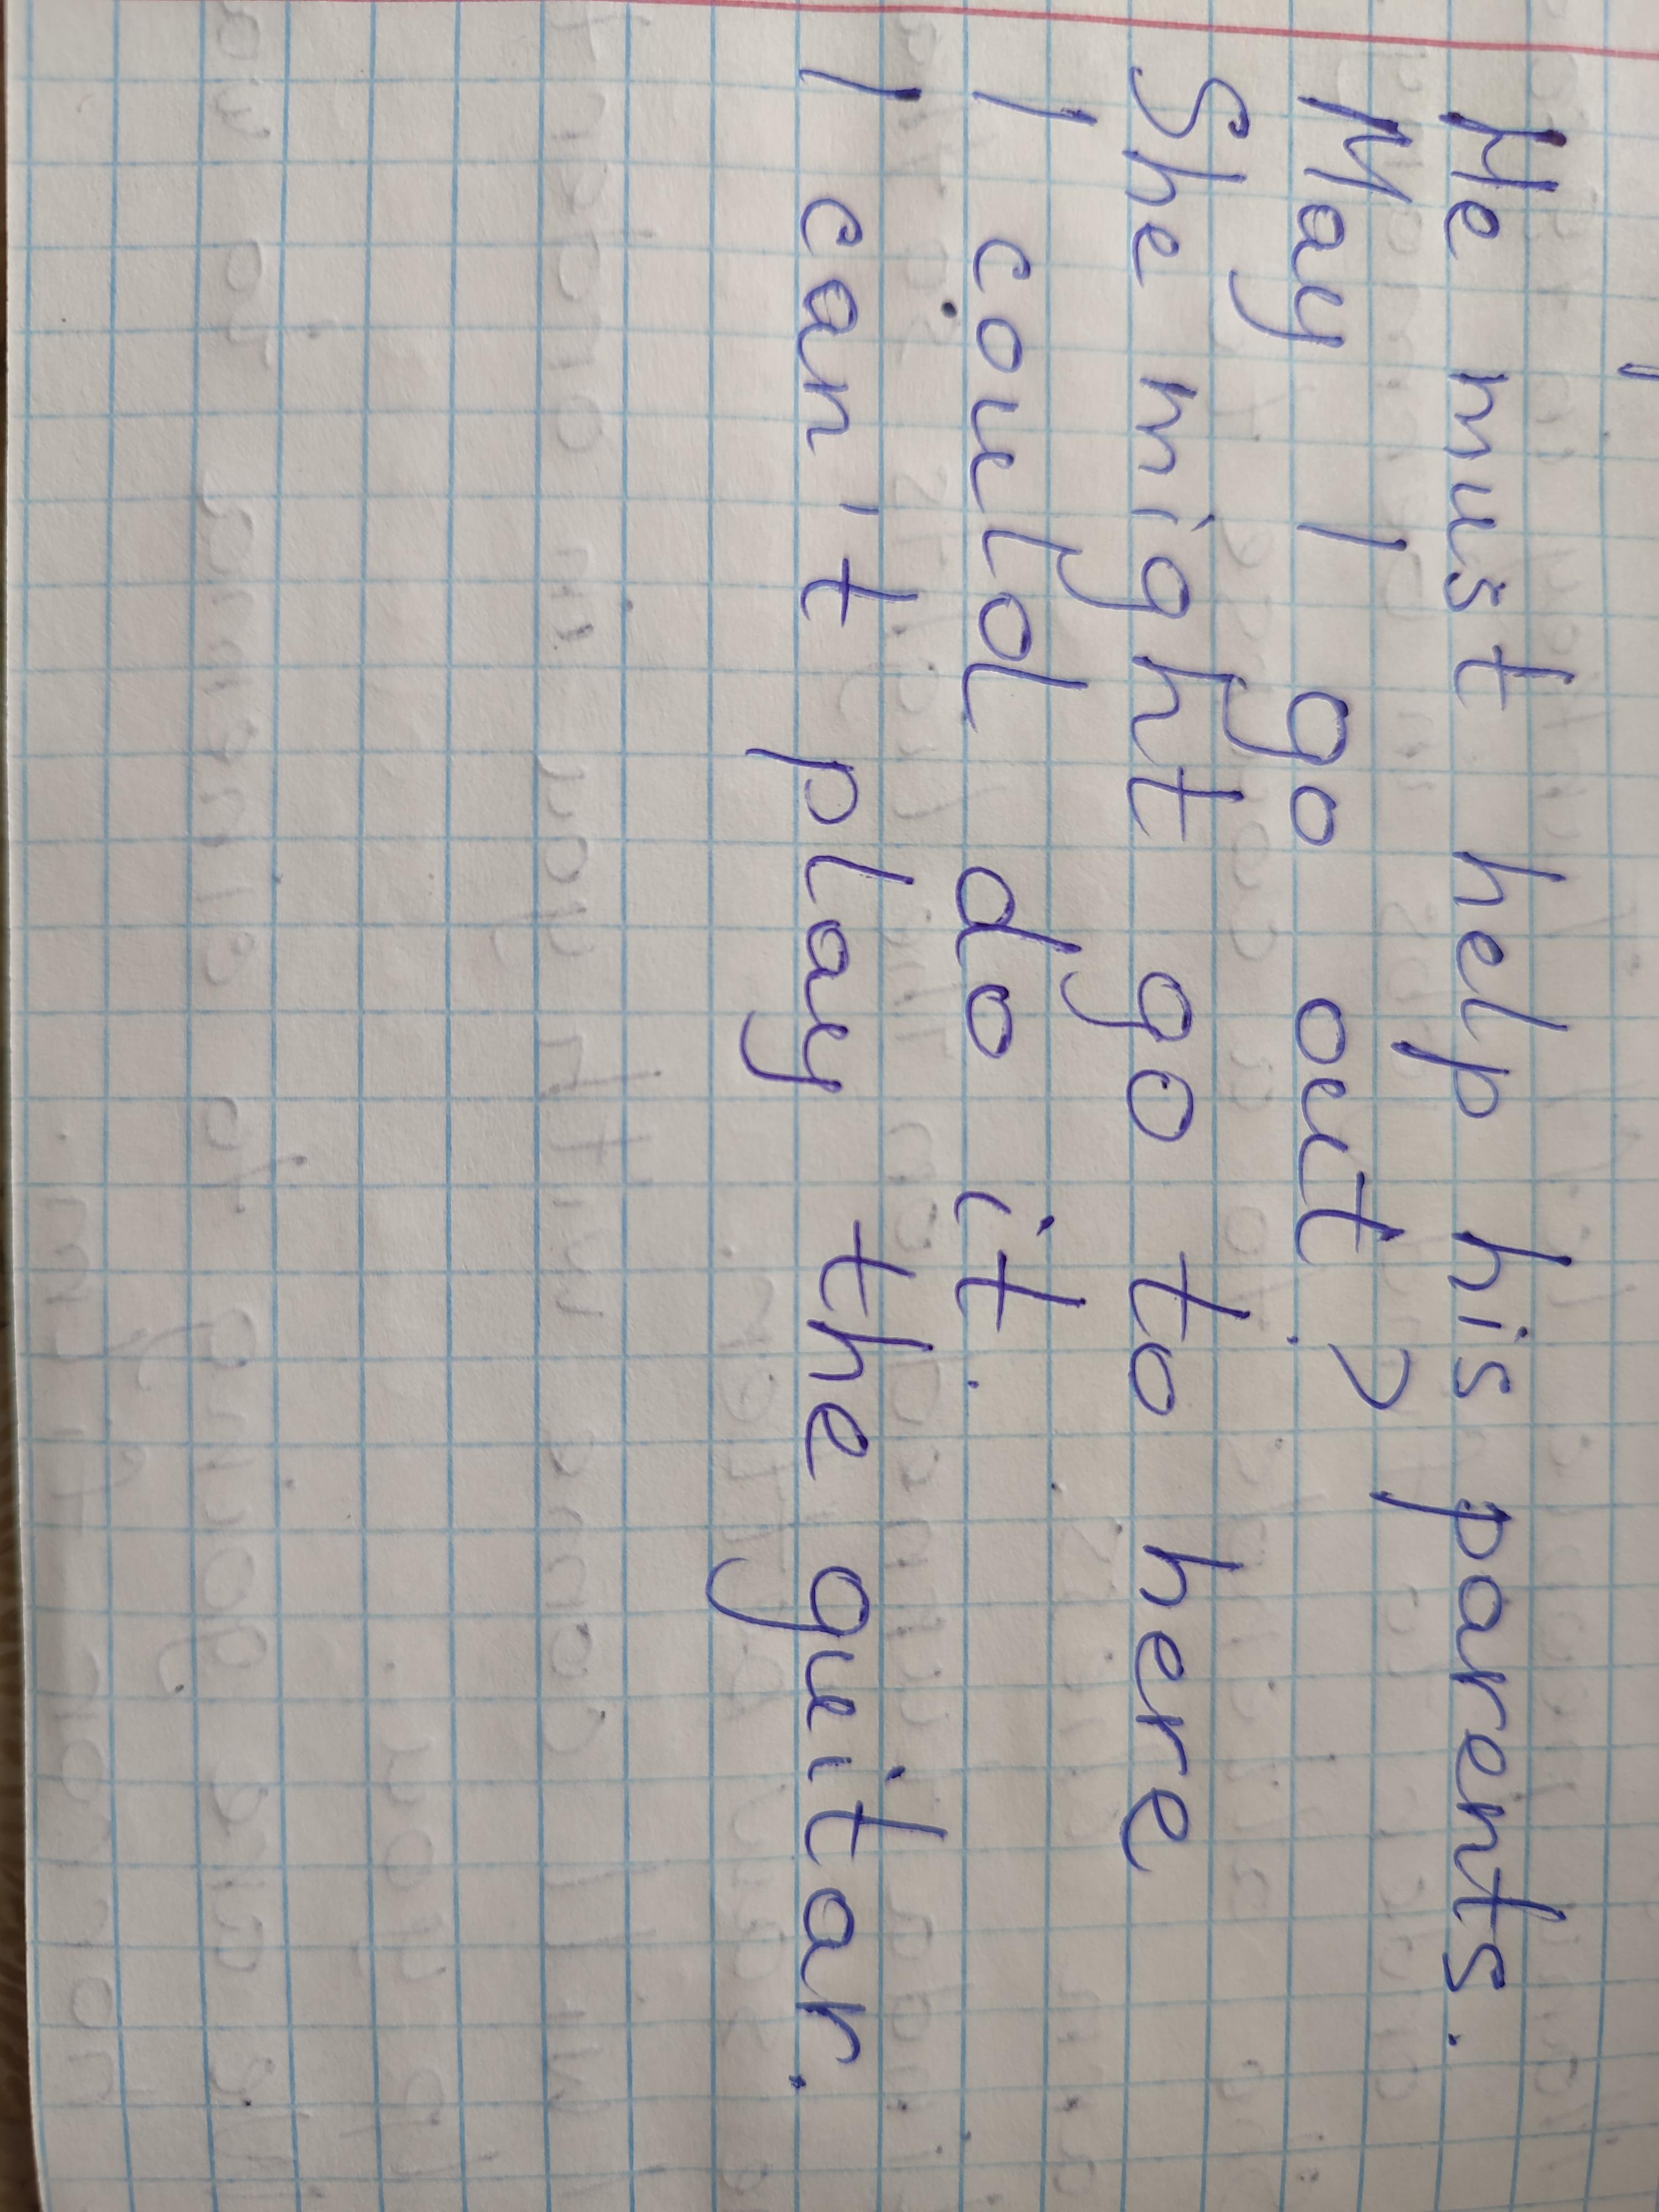 He must help his parents.
May I go out?
She might go to here
I could do it.
I can't play the guitar.